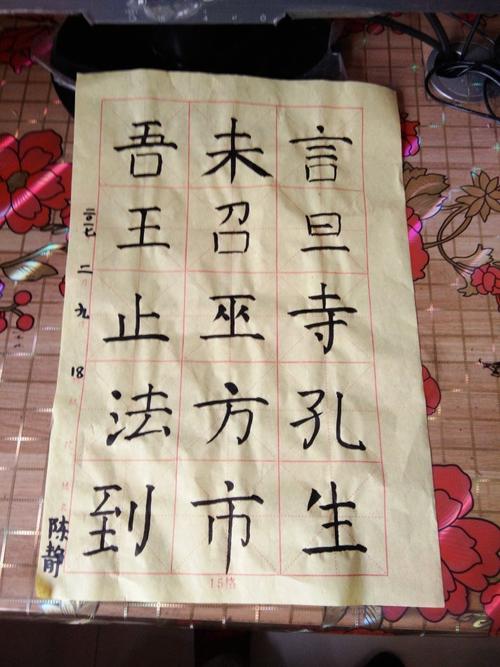 言旦寺孔生
未召巫方市
吾王止法到
二 九
18
陈静
15格